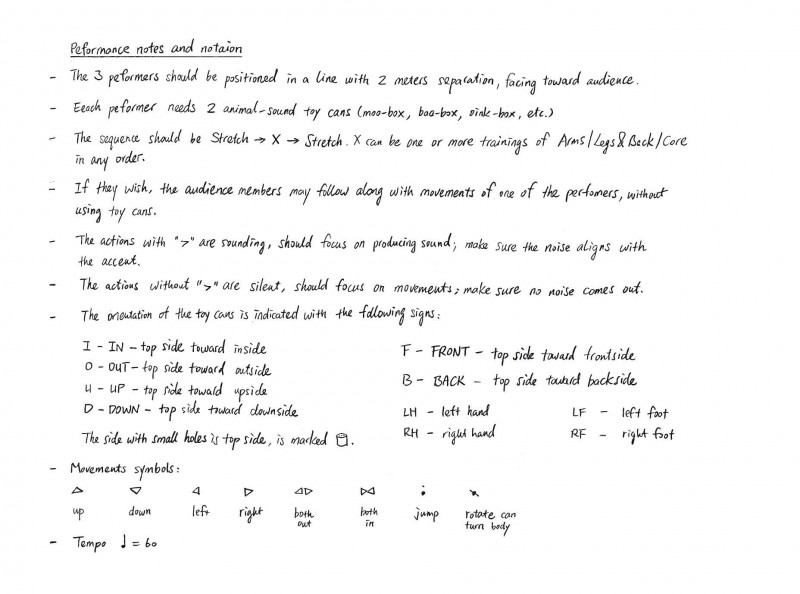 Peformance notes and notaion
- The 3 peformers should be positioned in a line with 2 meters separation, facing toward audience.
- Eeach peformer needs 2 animal-sound toy cans (moo-box, baa-box, oink-box, etc.)
- The sequence should be Stretch → X → Stretch. X can be one or more trainings of Arms/Legs&Back/Core
in any order.
- If they wish, the audience members may follow along with movements of one of the perfomers, without
using toy cans.
- The actions with ">" are sounding, should focus on producing sound; make sure the noise aligns with
the accent.
- The actions without ">" are silent, should focus on movements; make sure no noise comes out.
- The orientation of the toy cans is indicated with the following signs:
I - IN - top side toward inside
O - OUT - top side toward outside
U - UP - top side toward upside
D - DOWN - top side toward downside
F - FRONT - top side toward frontside
B - BACK - top side toward backside
LH - left hand LF - left foot
RH - right hand RF - right foot
The side with small holes is top side, is marked .
- Movements symbols:
△ ▽ ◁ ▷ ◁▷ ▷◁
up down left right both out both in jump rotate can turn body
- Tempo ♩ = 60